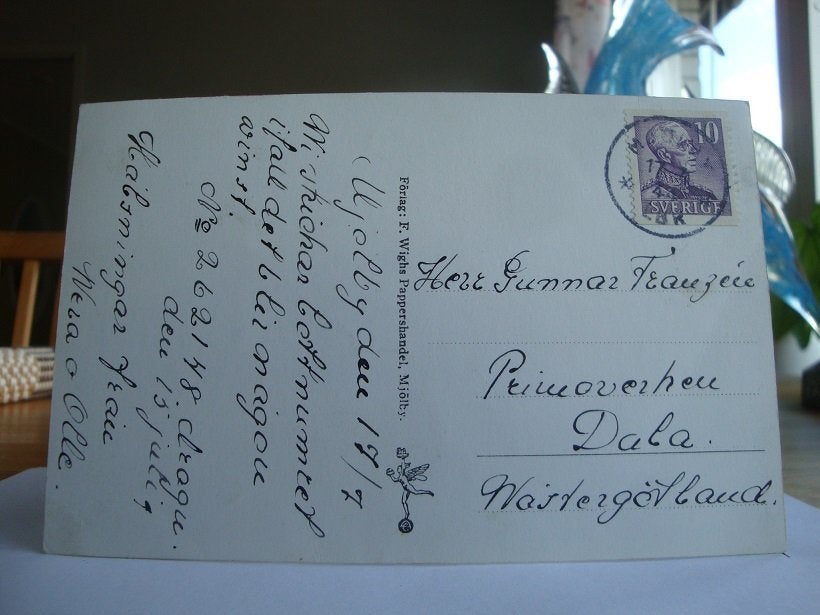 Mjölby den 17/7
Wi skickar lottnumret
ifall det blir någon
vinst.
No 262148 dragn.
den 15 juli
Hälsningar från
Wera o Olle.
Förlag: F. Wighs Pappershandel, Mjölby.
10
SVERIGE
Herr Gunnar Franzén
Primoverken
Dala.
Wästergötland.